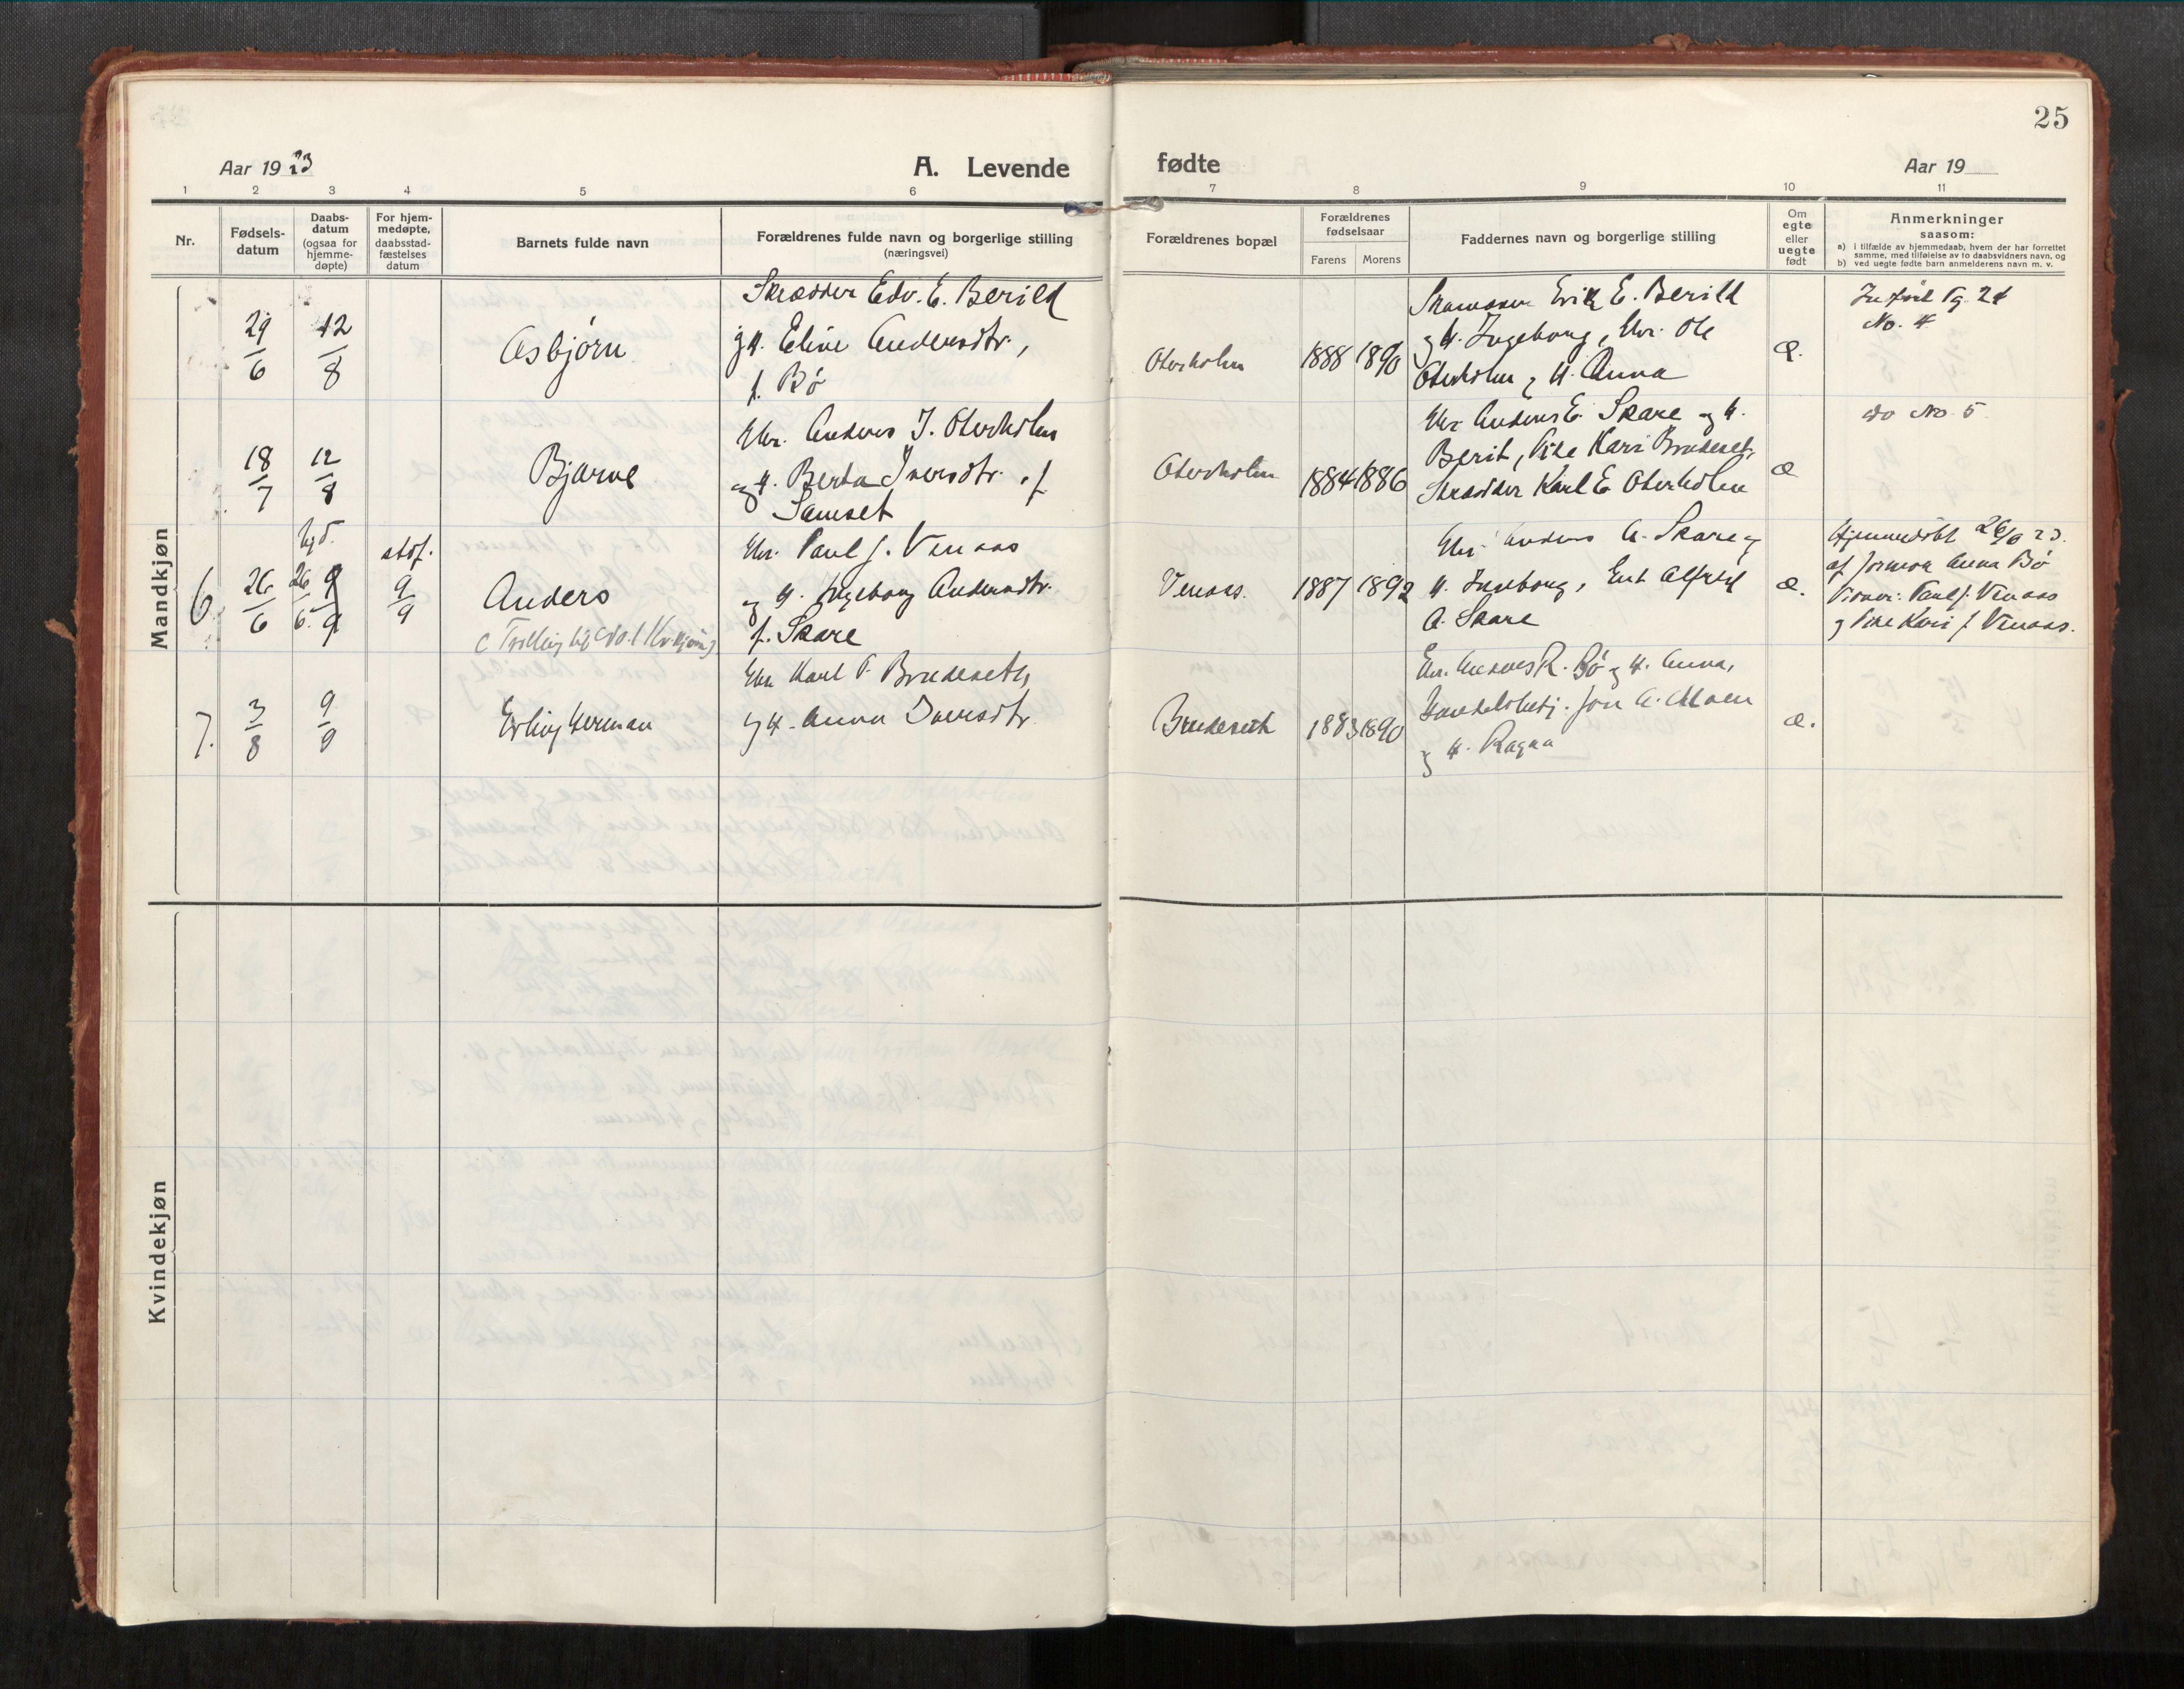 25
Aar 1923
A. Levende
fødte
Aar 19
1 2 3 4 5 6 7 8 9 10 11
Nr.
Fødsels-
datum
Daabs-
datum
(ogsaa for
hjemme-
døpte)
For hjem-
medøpte,
daabsstad-
fæstelses
datum
Barnets fulde navn
Forældrenes fulde navn og borgerlige stilling
(næringsvei)
Forældrenes bopæl
Forældrenes
fødselsaar
Farens Morens
Faddernes navn og borgerlige stilling
Om
egte
eller
uegte
født
Anmerkninger
saasom:
a) i tilfælde av hjemmedaab, hvem der har forrettet
samme, med tilføielse av to daabsvidners navn, og
b) ved uegte fødte barn anmelderens navn m. v.
Mandkjøn
29/6 12/8
Asbjørn
Skrædder Edv. E. Berild
g H. Eline Andersdtr,
f. Bø
Oterholm
1888 1890
Erik E. Berild
og H. Ingeborg, Gbr. Ole
Oterholm g H. Anna
Æ.
Indført Pg. 24
No. 4
18/7 12/8
Bjarne
Gbr. Anders J. Oterholm
og H. Berta Iversdtr. f
Samset
Oterholm
1884 1886
Gbr Anders E. Skare og H.
Berit, Pike Kari Brudeset,
Skrædder Karl E Oterholm
æ
do No 5
6. 26/6 hjd. 26/6. 9/9 stdf. 9/9
Anders
(Tvilling t/
Gbr. Paul J. Venaas
og H. Ingeborg Andersdtr.
f. Skare
Venaas.
1887 1892
Gbr Anders A. Skare g
H. Ingeborg, Ent Alfred
A. Skare
æ.
Hjemmedøbt 26/6 23.
af Jormor Anna Bø
Vidner: Paul J. Venaas
g Pike Kari J Venaas.
7. 3/8 9/9
Erling Herman
Gbr Karl P. Brudeseth
g H. Anna Iversdtr
Brudeseth
1883 1890
Gbr. Anders R. Bø g H. Anna,
Handelsbetj. Jon A. Moen
g H. Ragna
æ.
Kvindekjøn